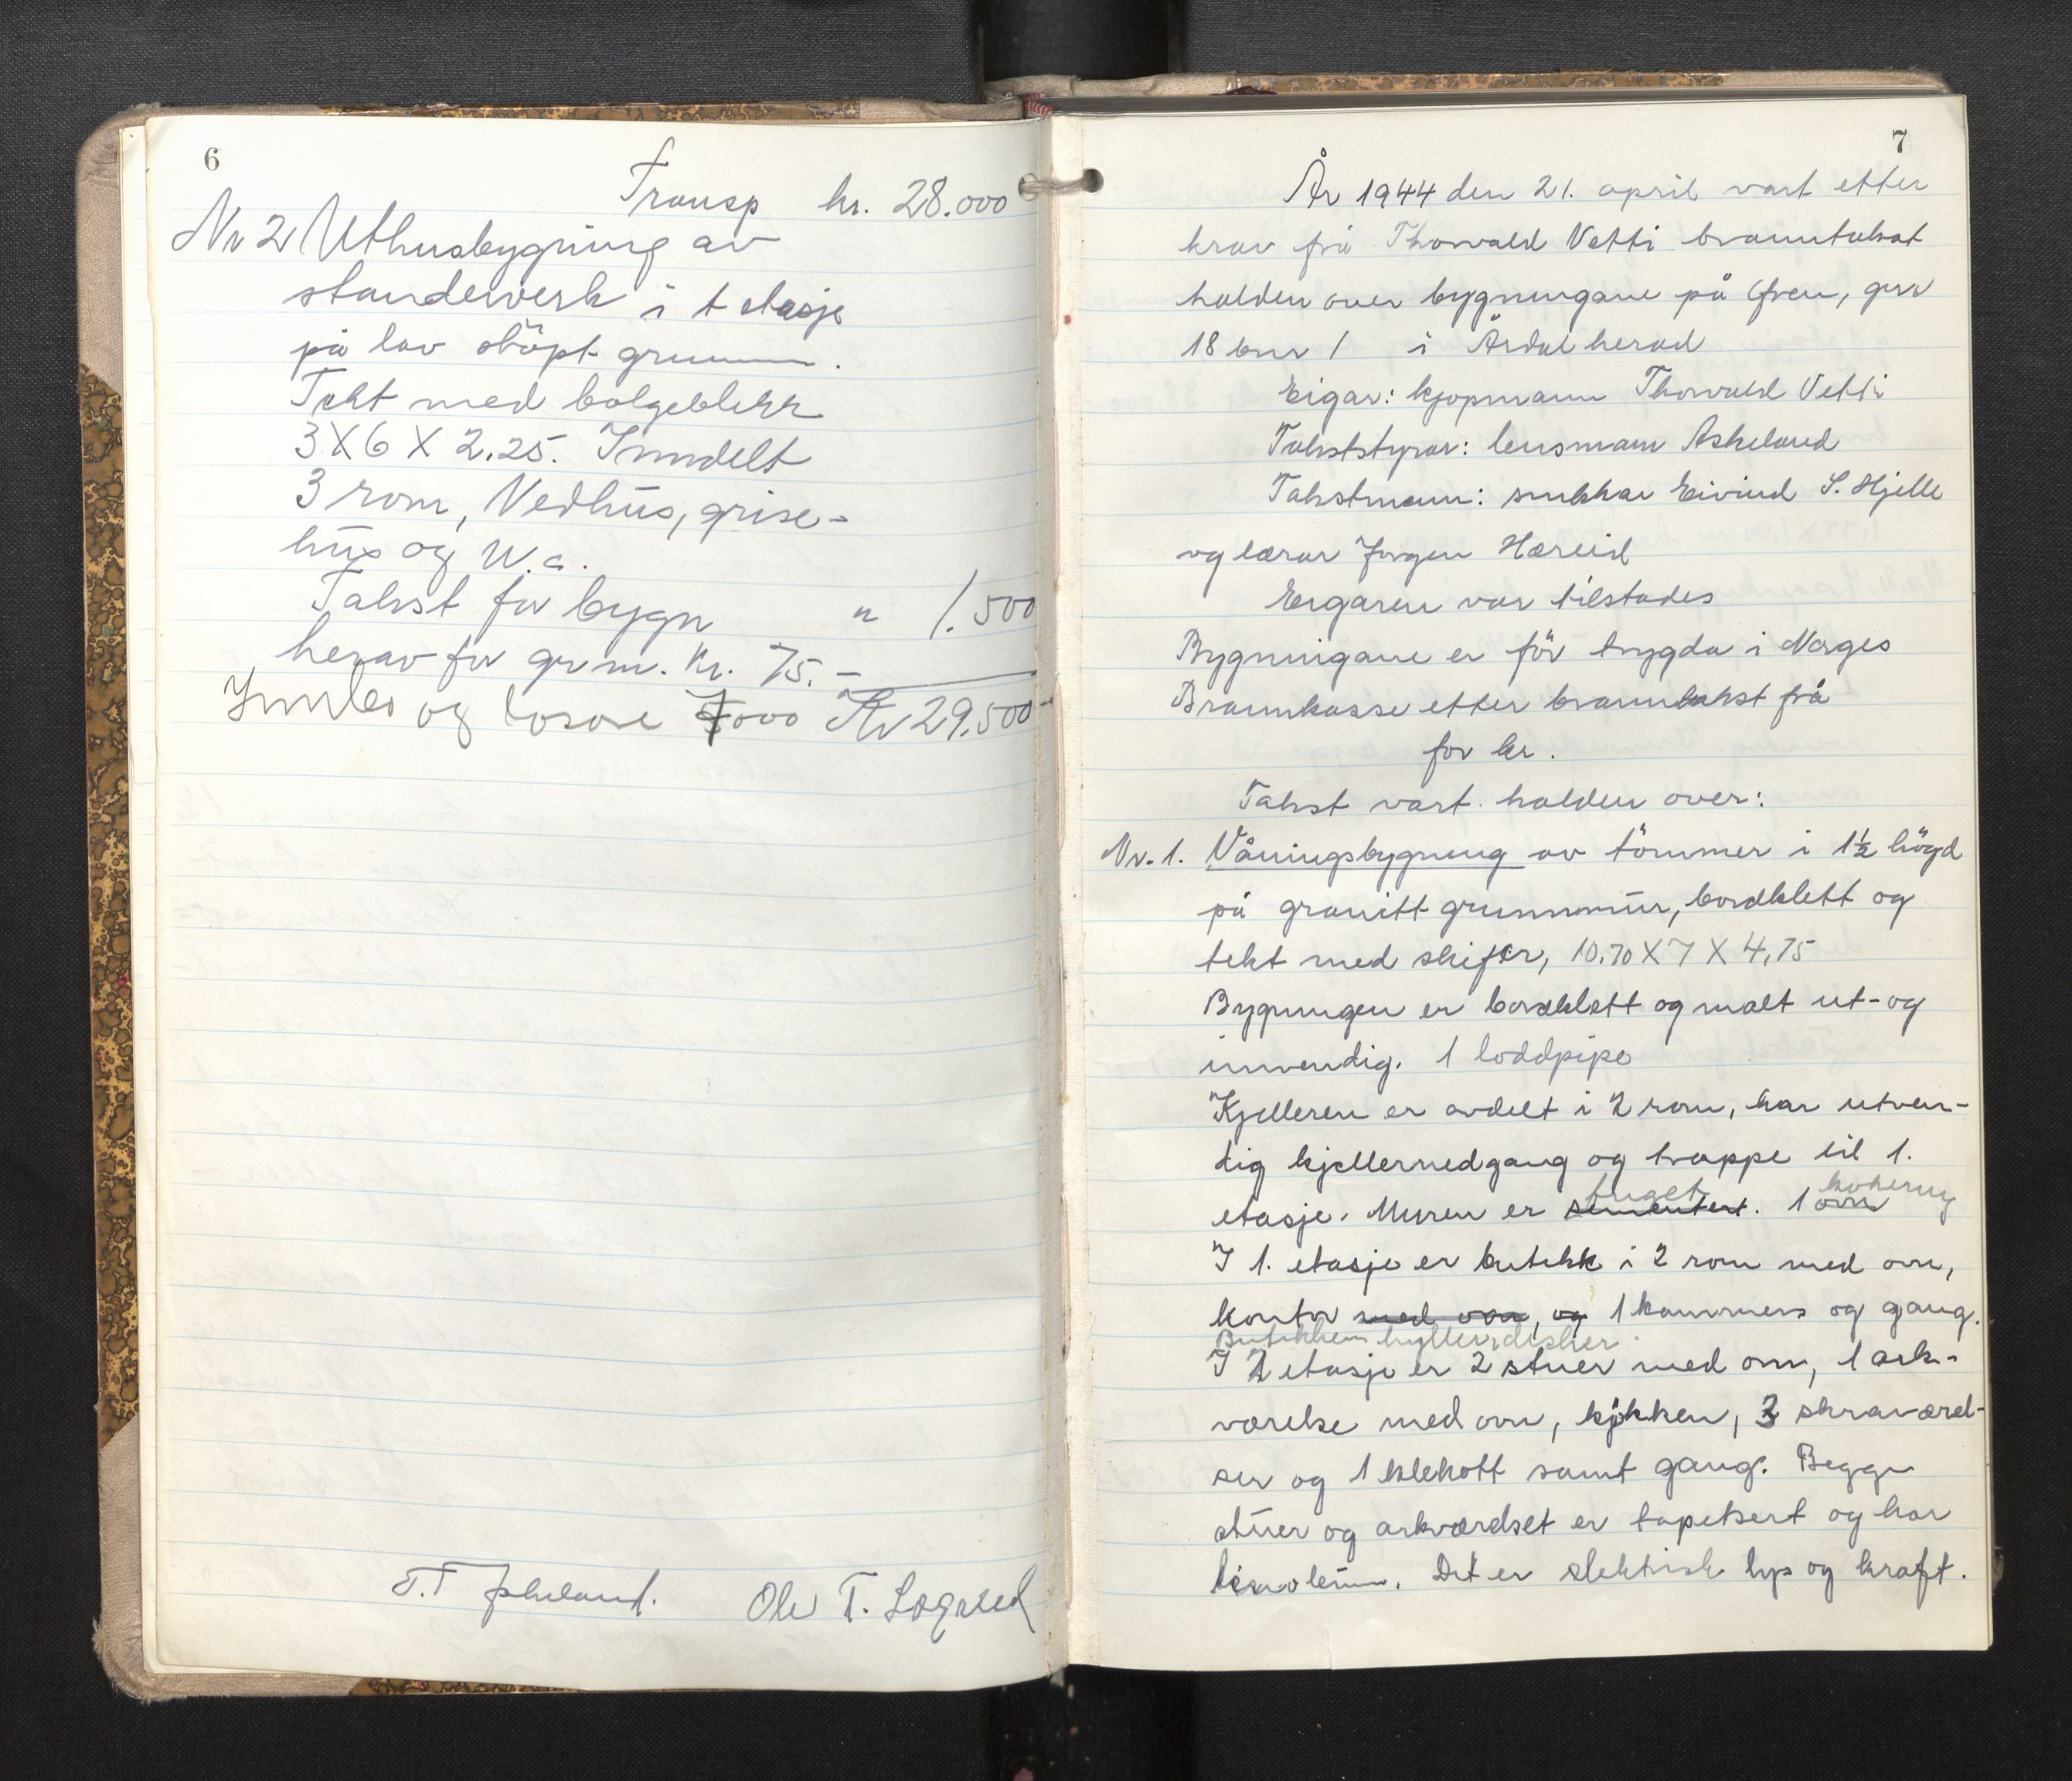 6
Transp kr. 28.000
Nr 2 Uthusbygning av
standerverk i 1 etasje
på lav stöpt grunnm.
Tekt med bolgeblekk
3 X 6 X 2.25. Inndelt
3 rom, Vedhus, grise-
hus og W.c.
Takst for bygn " 1.500
herav for grm. kr. 75.-
Innbo og losøre 7000 Kr 29.500
Ole T. Lægreid
7
År 1944 den 21. april vart etter
krav frå Thorvald Vetti branntakst
halden over bygningane på Øren, gnr
18 bnr 1 i Årdal herad
Eigar: kjøpmann Thorvald Vetti
Takststyrar: lensmann Askeland
Takstmenn: snikkar Eivind S. Hjelle
og lærar Jørgen Hæreid
Eigaren var tilstades
Bygningane er för trygda i Norges
Brannkasse etter branntakst frå
for kr.
Takst vart halden over:
Nr. 1. Våningsbygning av tömmer i 1½ högd
på granitt grunnmur, bordklett og
tekt med skifer, 10.70 X 7 X 4,75
Bygningen er bordklett og malt ut- og
innvendig. 1 loddpipe
Kjelleren er avdelt i 2 rom, har utven-
dig kjellernedgang og trappe til 1.
fuget kokeruy
etasje. Muren er sementert. 1 ovn
I 1. etasje er butikk i 2 rom med ovn,
kontor med ovn, og 1 kammers og gang.
Butikken hyller, disker.
I 2 etasje er 2 stuer med ovn, 1 ark-
værelse med ovn, kjøkken, 3 skraværel-
ser og 1 klekott samt gang. Begge
stuer og arkværelset er tapetsert og har
linoleum. Det er elektrisk lys og kraft.